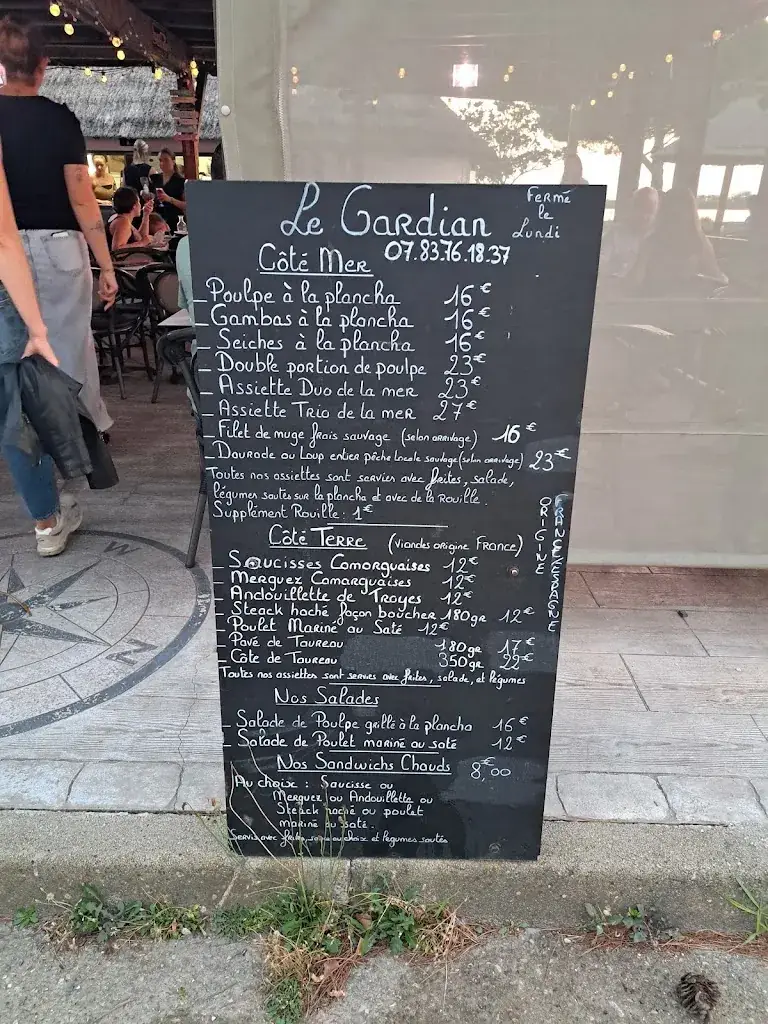 Le Gardian
Fermé
le
Lundi
07.83.76.18.37
Côté Mer
_ Poulpe à la plancha 16€
_ Gambas à la plancha 16€
_ Seiches à la plancha 16€
_ Double portion de poulpe 23€
_ Assiette Duo de la mer 23€
_ Assiette Trio de la mer 27€
_ Filet de muge frais sauvage (selon arrivage) 16€
_ Dourade ou Loup entier pêche locale sauvage (selon arrivage) 23€
Toutes nos assiettes sont servies avec frites, salade,
légumes sautés sur la plancha et avec de la Rouille.
Supplément Rouille: 1€
Côté Terre (Viandes origine France)
_ Saucisses Camarguaises 12€
_ Merguez Camarguaises 12€
_ Andouillette de Troyes 12€
_ Steack haché façon boucher 180gr 12€
_ Poulet Mariné au Saté 12€
_ Pavé de Taureau 180gr 17€
_ Côte de Taureau 350gr 22€
ORIGINE
FRANCE/ESPAGNE
Toutes nos assiettes sont servies avec frites, salade, et légumes
Nos Salades
_ Salade de Poulpe grillé à la plancha 16€
_ Salade de Poulet mariné au saté 12€
Nos Sandwichs Chauds 8,00€
Au choix : Saucisse ou
Merguez ou Andouillette ou
Steack haché ou poulet
mariné au saté.
Servis avec frites, sauce au choix et légumes sautés
W
N